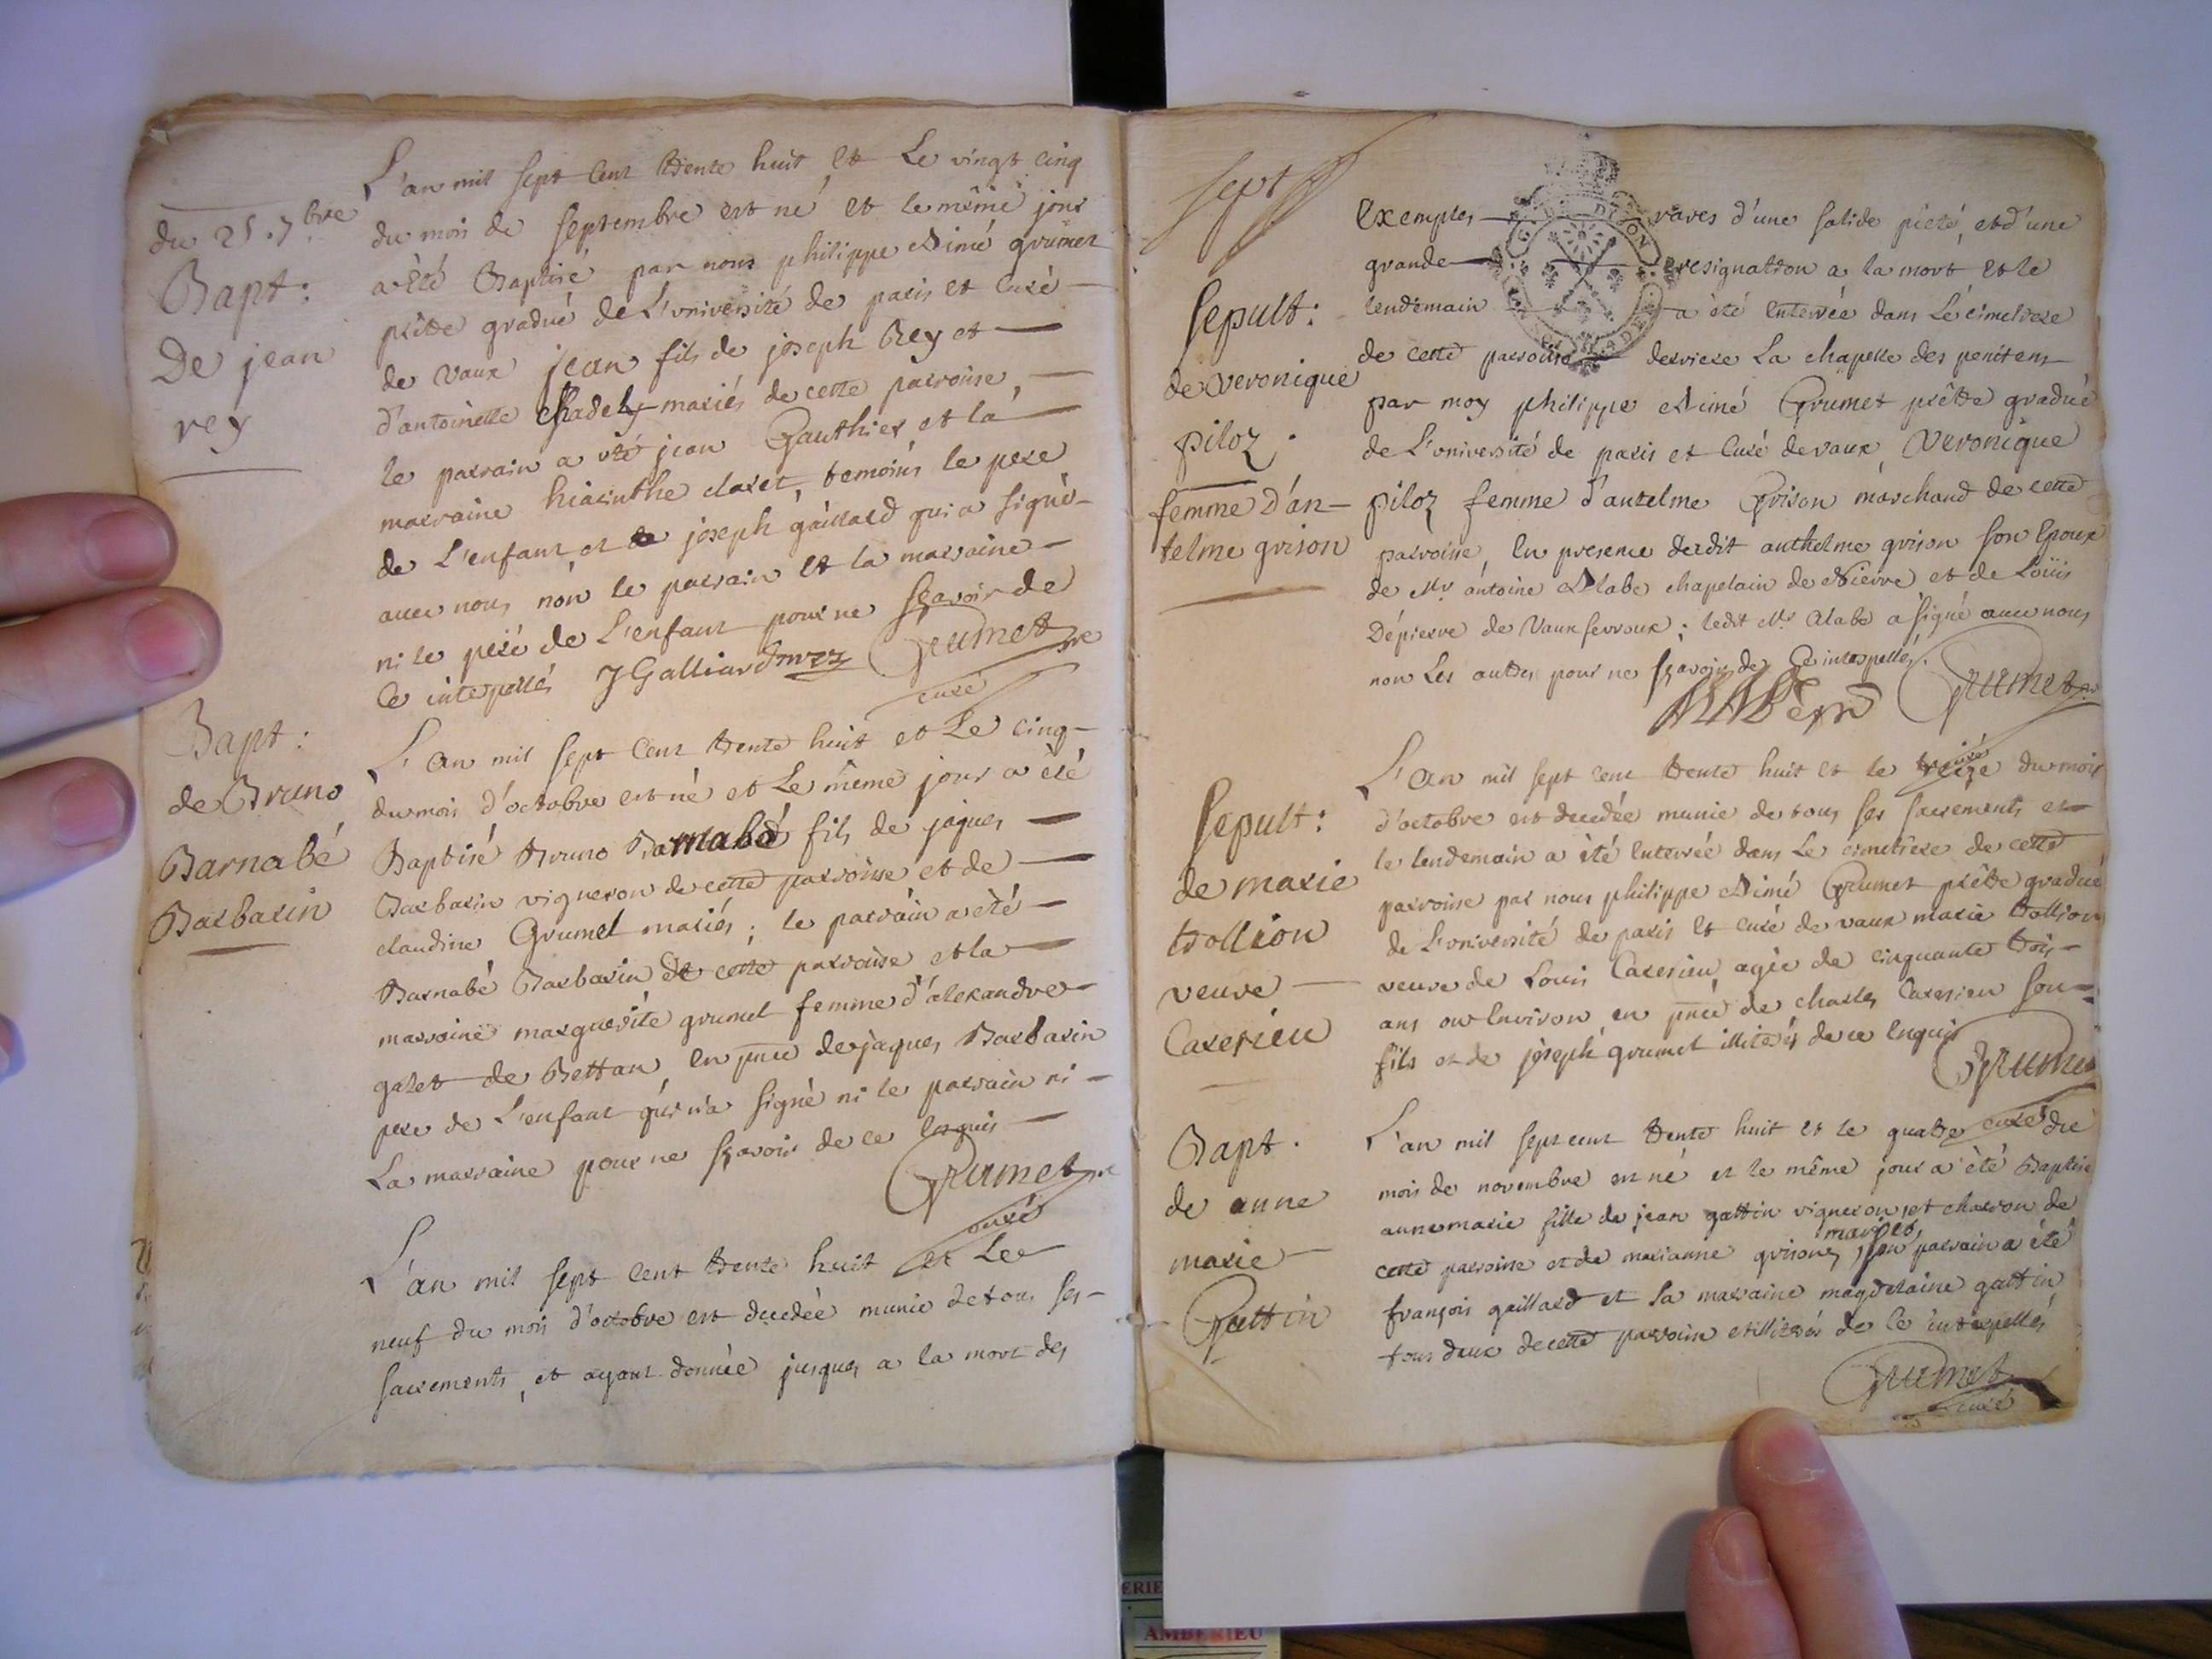 du 25. 7bre
Bapt:
De jean
rey
L'an mil sept cent trente huit et Le vingt cinq
du mois de septembre est né et le même jour
a èté Baptisé par nous philippe Aimé grumet
prêtre gradué de L'université de paris et curé
de vaux jean fils de joseph Rey et
d'antoinette mariés de cette parroisse,
le parrain a été jean Gauthier et la
marraine hiacinthe claret, temoins le pere
de L'enfant et joseph gaillard qui a signè
avec nous non le parrain et la marraine
ni le pere de L'enfant pour ne sçavoir de
Ce interpellés J Galliard Grumet
curé
Bapt:
de Bruno
Barnabé
Barbarin
L'an mil sept cent trente huit et Le cinq
du mois d'octobre est né et Le même jour a été
Baptisé Bruno Barnabé fils de jaques
Barbarin vigneron de cette parroisse et de
claudine Grumet mariés; le parrain a èté
Barnabé Barbarin de cette parroisse et la
marraine marguerite grumet femme d'alexandre
galet de Bettan, en pnce de jaques Barbarin
pere de L'enfant qui n'a signé ni le parrain ni
La marraine pour ne sçavoir de ce enquis
Grumet
curé
L'an mil sept cent trente huit et Le
neuf du mois d'octobre est decedée munie de tous ses
sacrements, et ayant donnée jusques a la mort des
sept
Sepult:
de veronique
piloz.
femme D'an-
telme grison
Exemples raves d'une solide pieté, et d'une
grande resignation a la mort et le
lendemain a été enterrée dans Le cimetiere
de cette parroisse derriere La chapelle des penitens
par moy philippe Aimé Grumet prêtre gradué
de L'université de paris et curé de vaux, Veronique
piloz femme d'antelme Grison marchand de cette
parroisse, en presence dudit anthelme grison son Epoux
de Mr antoine Alabe chapelain de Nievre et de Loüis
Dépierre de Vaux fevroux; ledit Mr Alabe a signé avec nous
non Les autres pour ne sçavoir de Ce interpellés.
Grumet
Sepult:
de marie
trollion
veuve
Caresieu
L'an mil sept cent trente huit et le treize du mois
curé
d'octobre est decedée munie de tous ses sacréments et
le lendemain a été enterrée dans Le cimetiere de cette
parroisse par nous philippe Aimé Grumet prêtre gradué
de L'université de paris et curé de vaux marie trollion
veuve de Louis Caresieu, agée de cinquante trois
ans ou environ, en pnce de charles Caresieu son
fils et de joseph grumet illiterés de ce enquis
Grumet
curé
Bapt.
de anne
marie
Gattin
L'an mil sept cent trente huit et le quatre du
mois de novembre est né et le même jour a été Baptisé
anne marie fille de jean gattin vigneron et charron de
cette parroisse et de marianne grison mariés, son parrain a été
françois gaillard et la marraine magdelaine gattin
tous deux de cette parroisse et illiterés de ce interpellés
Grumet
curé
DIJON
AMBERIEU